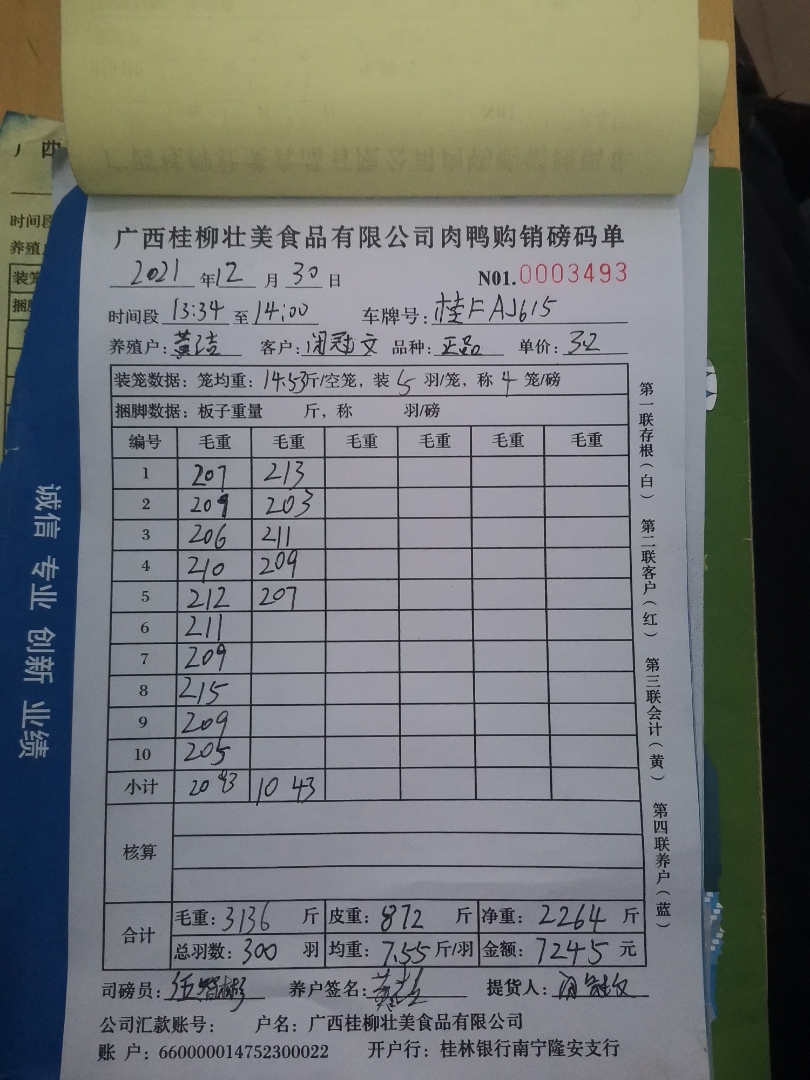 广西桂柳壮美食品有限公司肉鸭购销磅码单
2021 年 12 月 30 日 N01.0003493
时间段 13:34 至 14:00 车牌号: 桂FAJ615
养殖户: 黄洁 客户: 闭冠文 品种: 正品 单价: 3.2
装笼数据: 笼均重: 14.53 斤/空笼, 装 5 羽/笼, 称 4 笼/磅
捆脚数据: 板子重量 斤, 称 羽/磅
编号 毛重 毛重 毛重 毛重 毛重 毛重
1 207 213
2 209 203
3 206 211
4 210 209
5 212 207
6 211
7 209
8 215
9 209
10 205
小计 2093 1043
核算
合计
毛重: 3136 斤 皮重: 872 斤 净重: 2264 斤
总羽数: 300 羽 均重: 7.55 斤/羽 金额: 7245 元
司磅员: 养户签名: 提货人:
公司汇款账号: 户名: 广西桂柳壮美食品有限公司
账 户: 660000014752300022 开户行: 桂林银行南宁隆安支行
第一联存根(白) 第二联客户(红) 第三联会计(黄) 第四联养户(蓝)
诚信 专业 创新 业绩
广西
时间段
养殖
装笼
捆